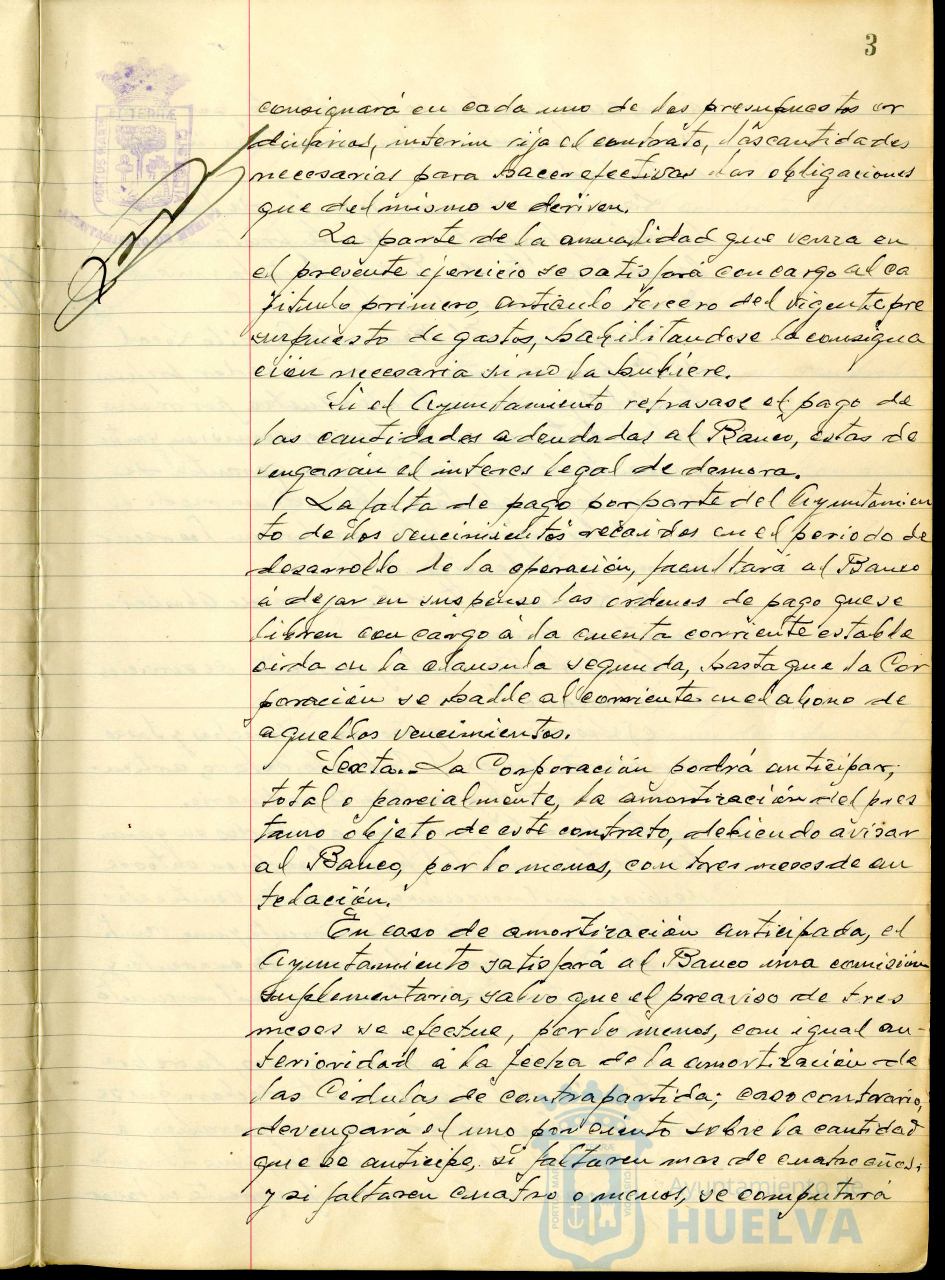 3
consignará en cada uno de los presupuestos or
dinarios, interin rija el contrato, las cantidades
necesarias para hacer efectivas las obligaciones
que del mismo se deriven.
La parte de la anualidad que venza en
el presente ejercicio se satisfará con cargo al ca
pitulo primero, articulo tercero del vigente pre
supuesto de gastos, habilitandose la consigna
ción necesaria si no la hubiere.
Si el Ayuntamiento retrasase el pago de
las cantidades adeudadas al Banco, estas de
vengarán el interes legal de demora.
La falta de pago por parte del Ayuntamien
to de los vencimientos recaidos en el periodo de
desarrollo de la operación, facultará al Banco
á dejar en suspenso las ordenes de pago que se
libren con cargo á la cuenta corriente estable
cida en la clausula segunda, hasta que la Cor
poración se halle al corriente en el abono de
aquellos vencimientos.
Sexta.- La Corporación podrá anticipar,
total o parcialmente, la amortización del pres
tamo objeto de este contrato, debiendo avisar
al Banco, por lo menos, con tres meses de an
telación.
En caso de amortización anticipada, el
Ayuntamiento satisfará al Banco una comisión
suplementaria, salvo que el preaviso de tres
meses se efectue, por lo menos, con igual an-
terioridad á la fecha de la amortización de
las Cédulas de contrapartida; caso contrario,
devengará el uno por ciento sobre la cantidad
que se anticipe, si faltaren mas de cuatro años;
y si faltaren cuatro o menos, se computará
Ayuntamiento de
HUELVA